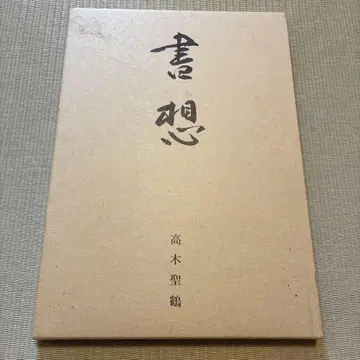 書想
高木聖鶴